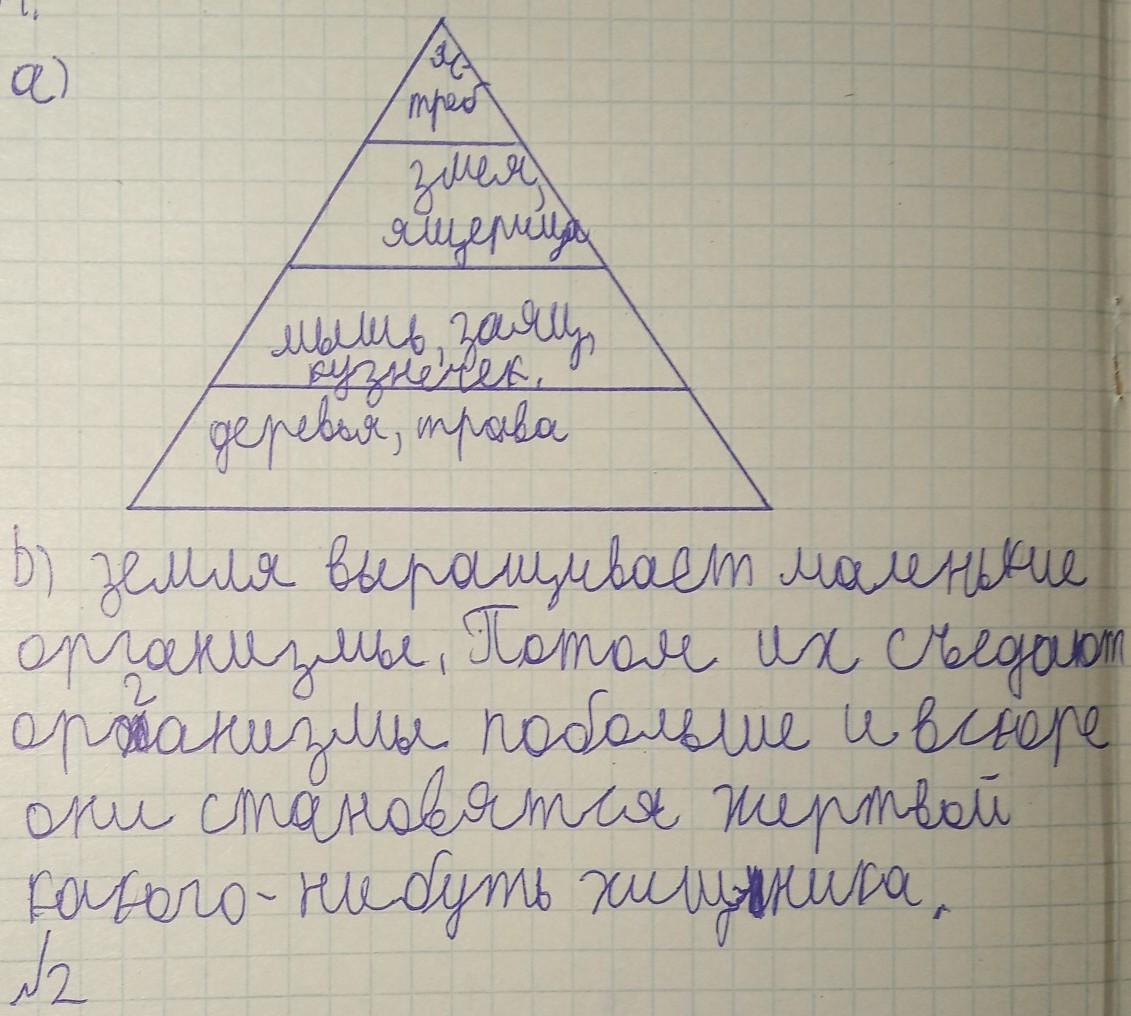 а)
яс-
треб
змея,
ящерица
мышь, заяц,
кузнечек.
деревья, трава
b) земля выращивает маленькие
организмы. Потом их съедают
организмы побольше и вскоре
они становятся жертвой
какого-нибуть хищника.
№2